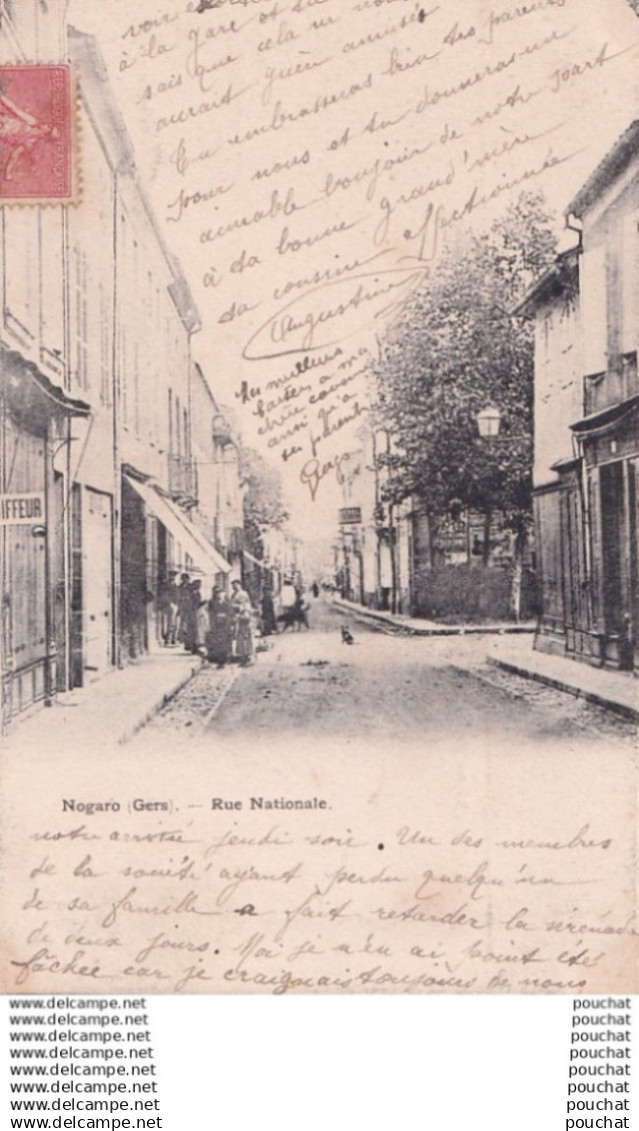 voir
à la gare et tu
sais que cela ne nous
aurait guère amusés
Tu embrasseras bien tes parents
pour nous et tu donneras un
aimable bonjour de notre part
à ta bonne grand'mère
ta cousine affectionnée
Augustine
Les meilleurs
baisers a ma
chère cousine
ainsi qu'a
ses parents
IFFEUR
Nogaro (Gers). — Rue Nationale.
notre arrivée jeudi soir. Un des membres
de la société ayant perdu quelqu'un
de sa famille a fait retarder la sérénade
de deux jours. Moi je n'en ai point été
fâchée car je craignais toujours de nous
www.delcampe.net pouchat
www.delcampe.net pouchat
www.delcampe.net pouchat
www.delcampe.net pouchat
www.delcampe.net pouchat
www.delcampe.net pouchat
www.delcampe.net pouchat
www.delcampe.net pouchat